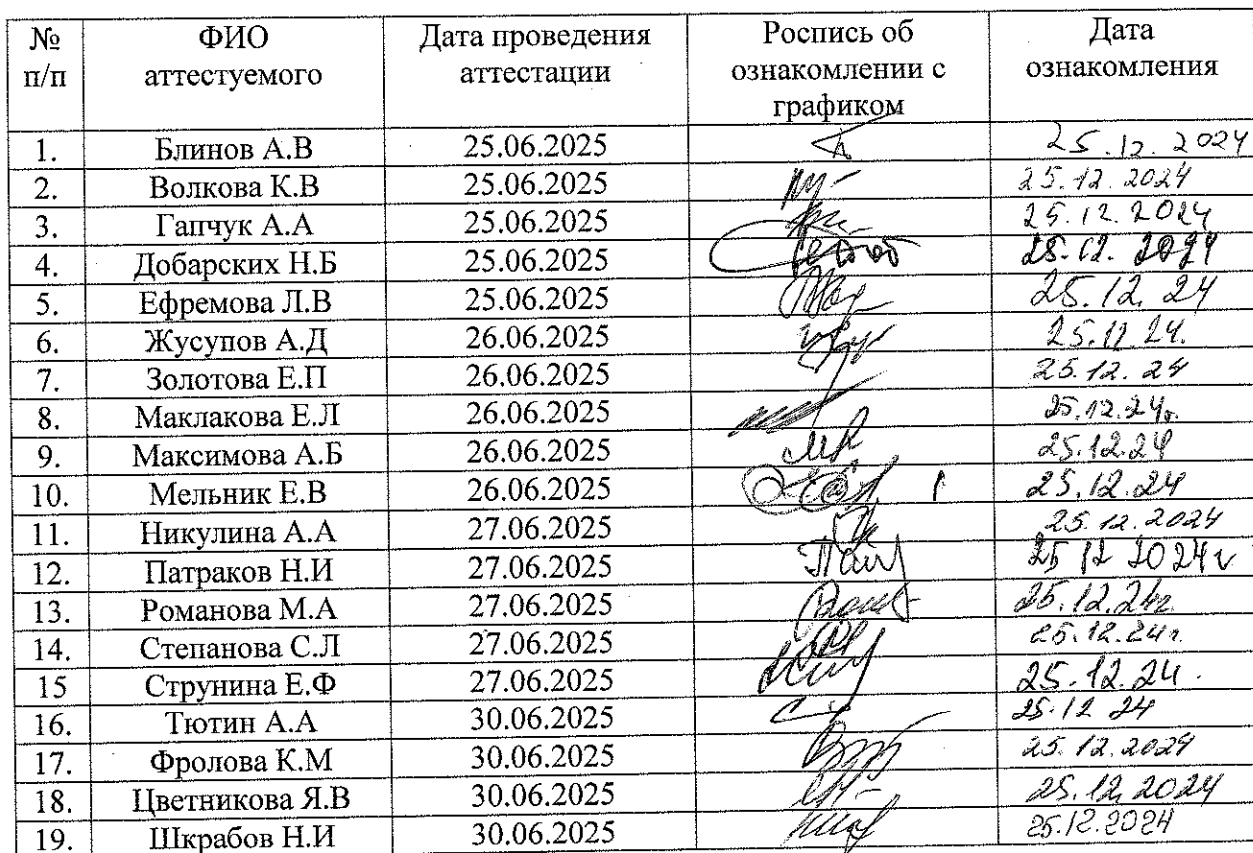 № п/п ФИО аттестуемого Дата проведения аттестации Роспись об ознакомлении с графиком Дата ознакомления
1. Блинов А.В 25.06.2025 25.12.2024
2. Волкова К.В 25.06.2025 25.12.2024
3. Гапчук А.А 25.06.2025 25.12.2024
4. Добарских Н.Б 25.06.2025 25.12.2024
5. Ефремова Л.В 25.06.2025 25.12.24
6. Жусупов А.Д 26.06.2025 25.12.24.
7. Золотова Е.П 26.06.2025 25.12.24
8. Маклакова Е.Л 26.06.2025 25.12.24г.
9. Максимова А.Б 26.06.2025 25.12.24
10. Мельник Е.В 26.06.2025 25.12.24
11. Никулина А.А 27.06.2025 25.12.2024
12. Патраков Н.И 27.06.2025 25 12 2024г
13. Романова М.А 27.06.2025 25.12.24г.
14. Степанова С.Л 27.06.2025 25.12.24г.
15 Струнина Е.Ф 27.06.2025 25.12.24.
16. Тютин А.А 30.06.2025 25.12 24
17. Фролова К.М 30.06.2025 25.12.2024
18. Цветникова Я.В 30.06.2025 25.12.2024
19. Шкрабов Н.И 30.06.2025 25.12.2024